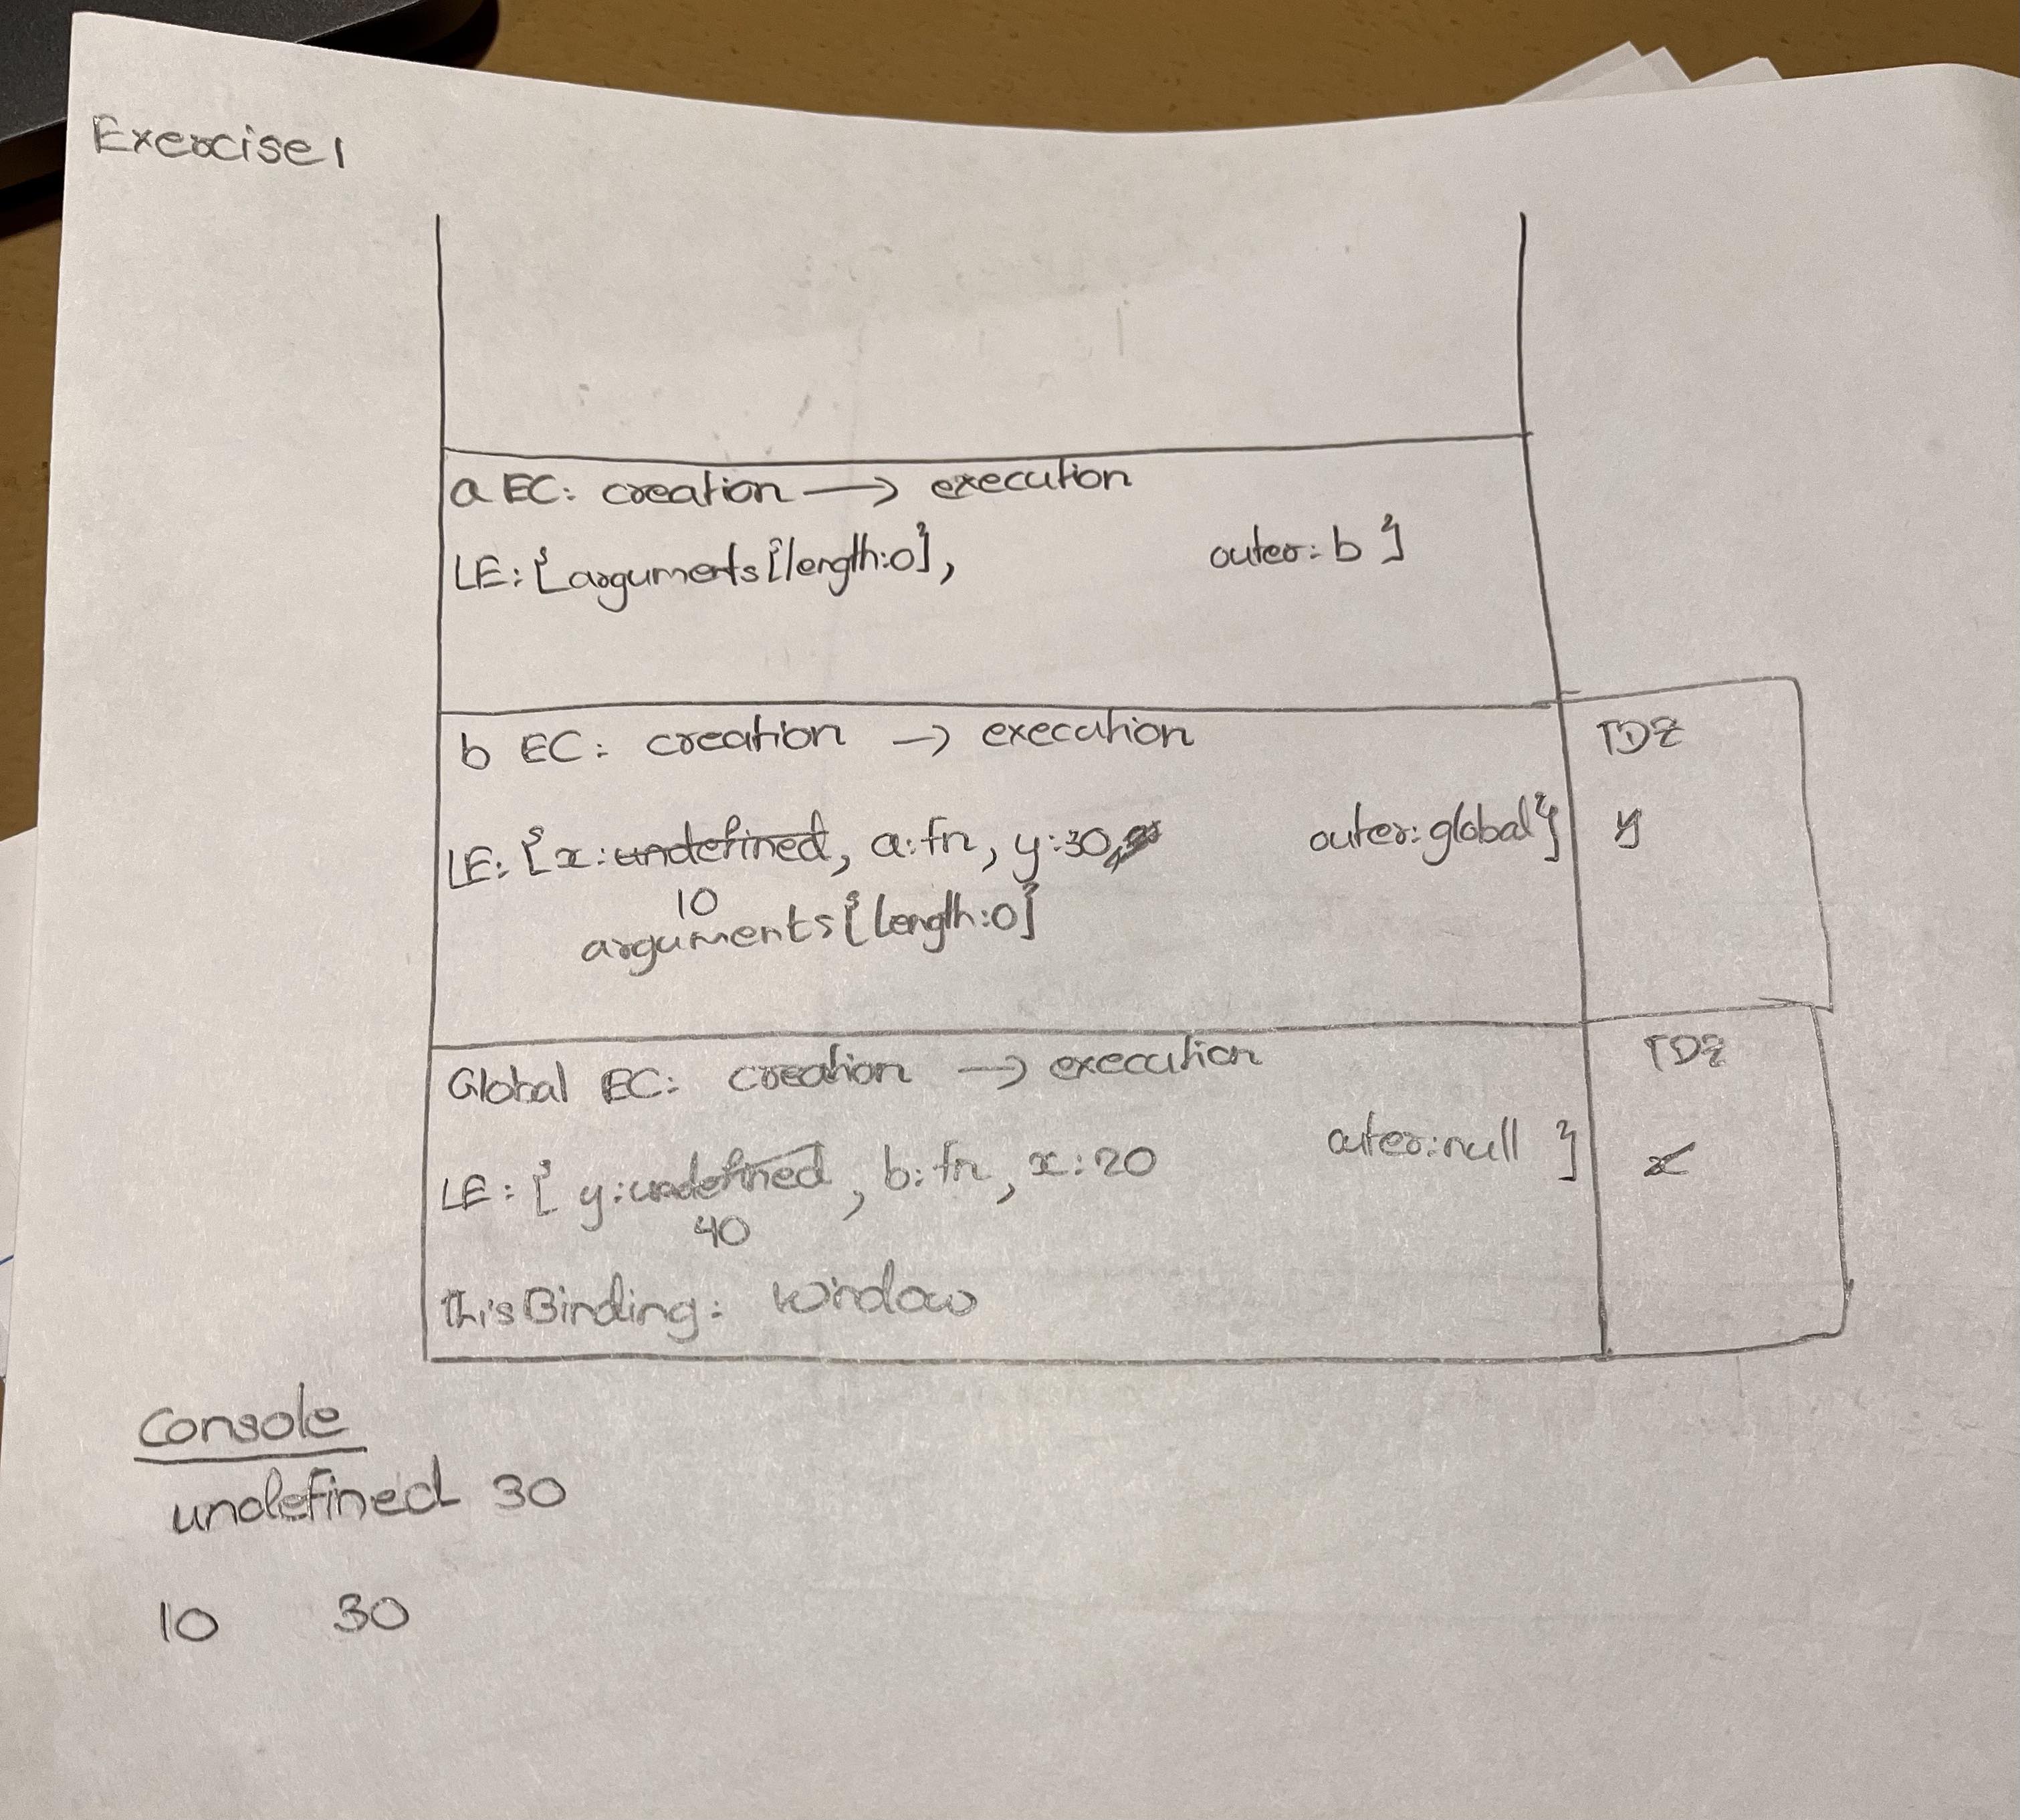 Exercise 1
a EC: creation → execution
LE: {arguments{length:0}, outer: b }
b EC: creation → execution TDZ
LE: {x: undefined, a: fn, y: 30, outer: global} y
10
arguments{length:0}
Global EC: creation → execution TDZ
LE: { y: undefined, b: fn, x: 20 outer: null } x
40
thisBinding: window
Console
undefined 30
10 30